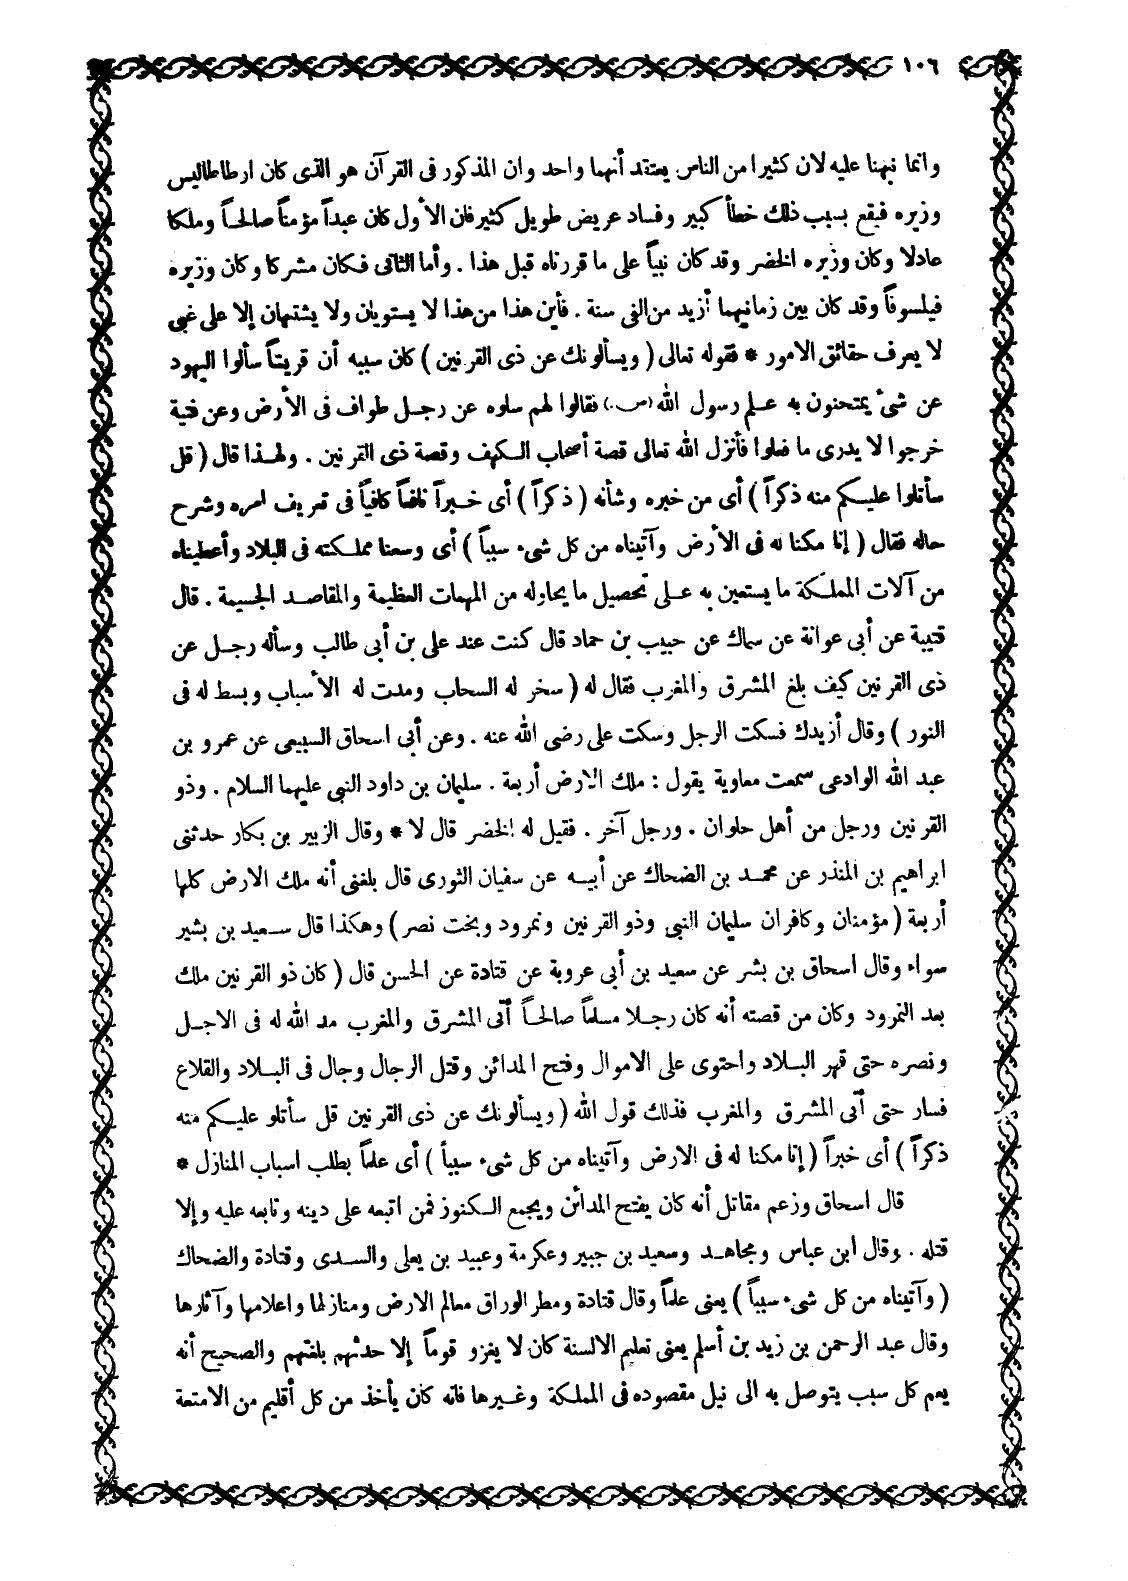 ١٠٦
وانما نبهنا عليه لان كثيرا من الناس يعتقد أنهما واحد وان المذكور فى القرآن هو الذى كان ارطاطاليس
وزيره فيقع بسبب ذلك خطأ كبير وفساد عريض طويل كثير فان الأول كان عبداً مؤمناً صالحاً وملكا
عادلا وكان وزيره الخضر وقد كان نبياً على ما قررناه قبل هذا . وأما الثانى فكان مشركا وكان وزيره
فيلسوفاً وقد كان بين زمانيهما أزيد من الفى سنة . فأين هذا من هذا لا يستويان ولا يشتبهان إلا على غبى
لا يعرف حقائق الامور * فقوله تعالى ( ويسألونك عن ذى القرنين ) كان سببه أن قريشاً سألوا اليهود
عن شئ يمتحنون به علم رسول الله (ص.) فقالوا لهم سلوه عن رجل طواف فى الأرض وعن فتية
خرجوا لا يدرى ما فعلوا فأنزل الله تعالى قصة أصحاب الكهف وقصة ذى القرنين . ولهذا قال ( قل
سأتلوا عليكم منه ذكراً ) أى من خبره وشأنه ( ذكراً ) أى خبراً نافعاً كافياً فى تعريف امره وشرح
حاله فقال ( إنا مكنا له فى الأرض وآتيناه من كل شىء سبباً ) أى وسعنا مملكته فى البلاد وأعطيناه
من آلات المملكة ما يستعين به على تحصيل ما يحاوله من المهمات العظيمة والمقاصد الجسيمة . قال
قتيبة عن أبى عوانة عن سماك عن حبيب بن حماد قال كنت عند على بن أبى طالب وسأله رجل عن
ذى القرنين كيف بلغ المشرق والمغرب فقال له ( سخر له السحاب ومدت له الأسباب وبسط له فى
النور ) وقال أزيدك فسكت الرجل وسكت على رضى الله عنه . وعن أبى اسحاق السبيعى عن عمرو بن
عبد الله الوادعى سمعت معاوية يقول : ملك الارض أربعة . سليمان بن داود النبى عليهما السلام . وذو
القرنين ورجل من أهل حلوان . ورجل آخر . فقيل له الخضر قال لا * وقال الزبير بن بكار حدثنى
ابراهيم بن المنذر عن محمد بن الضحاك عن أبيه عن سفيان الثورى قال بلغنى أنه ملك الارض كلها
أربعة ( مؤمنان وكافران سليمان النبى وذو القرنين ونمرود وبخت نصر ) وهكذا قال سعيد بن بشير
سواء وقال اسحاق بن بشر عن سعيد بن أبى عروبة عن قتادة عن الحسن قال ( كان ذو القرنين ملك
بعد النمرود وكان من قصته أنه كان رجلا مسلماً صالحاً أتى المشرق والمغرب مد الله له فى الاجل
ونصره حتى قهر البلاد واحتوى على الاموال وفتح المدائن وقتل الرجال وجال فى البلاد والقلاع
فسار حتى أتى المشرق والمغرب فذلك قول الله ( ويسألونك عن ذى القرنين قل سأتلو عليكم منه
ذكراً ) أى خبراً ( إنا مكنا له فى الارض وآتيناه من كل شىء سبباً ) أى علماً بطلب اسباب المنازل *
قال اسحاق وزعم مقاتل أنه كان يفتح المدائن ويجمع الكنوز فمن اتبعه على دينه وتابعه عليه وإلا
قتله . وقال ابن عباس ومجاهد وسعيد بن جبير وعكرمة وعبيد بن يعلى والسدى وقتادة والضحاك
( وآتيناه من كل شىء سبباً ) يعنى علماً وقال قتادة ومطر الوراق معالم الارض ومنازلها واعلامها وآثارها
وقال عبد الرحمن بن زيد بن أسلم يعنى تعليم الالسنة كان لا يغزو قوماً إلا حدثهم بلغتهم والصحيح أنه
يعم كل سبب يتوصل به الى نيل مقصوده فى المملكة وغيرها فانه كان يأخذ من كل أقليم من الامتعة